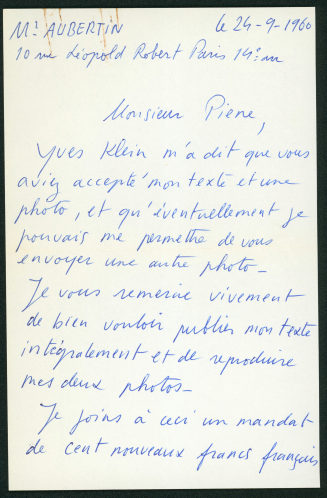 Mr AUBERTIN le 24-9-1960
10 rue Léopold Robert Paris 14e arr
Monsieur Piene,
Yves Klein m'a dit que vous
aviez accepté mon texte et une
photo, et qu'éventuellement je
pouvais me permettre de vous
envoyer une autre photo-
Je vous remercie vivement
de bien vouloir publier mon texte
intégralement et de reproduire
mes deux photos-
Je joins à ceci un mandat
de cent nouveaux francs français